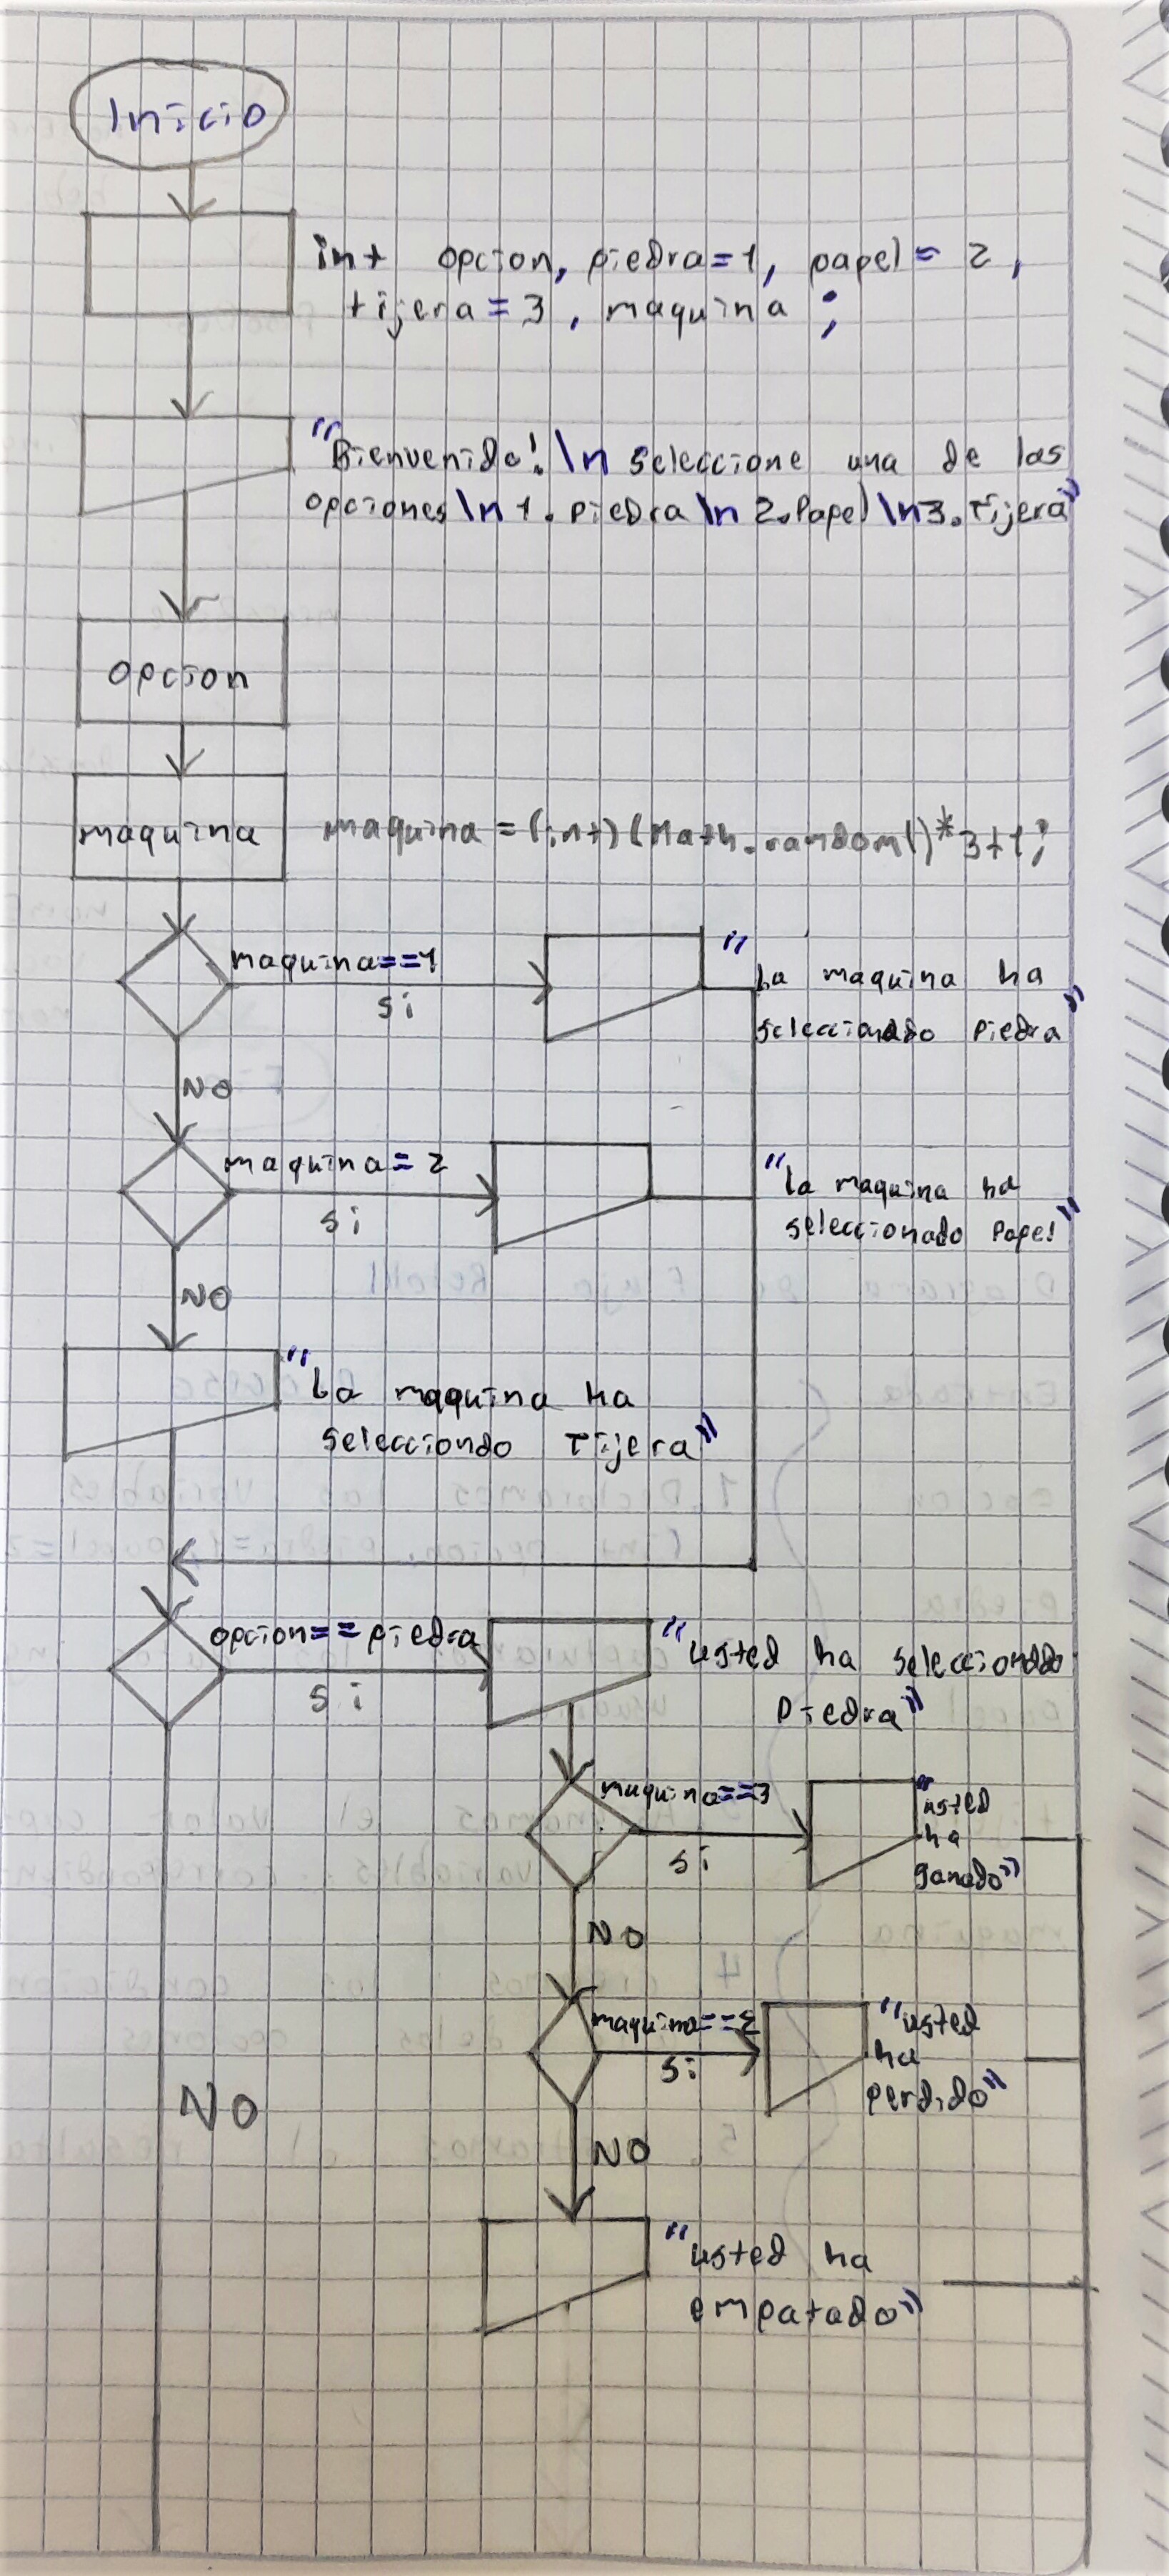 Inicio
int opcion, piedra=1, papel= 2,
tijera=3, maquina ;
"Bienvenido!\n seleccione una de las
opciones\n1.piedra\n2.Papel\n3.Tijera"
opcion
maquina
maquina =(int)(Math.random()*3+1;
maquina==1
si
"La maquina ha
seleccionado piedra"
NO
maquina= 2
si
"la maquina ha
seleccionado Papel"
NO
"La maquina ha
selecciondo Tijera"
opcion==piedra
si
"usted ha seleccionado
Piedra"
maquina==3
si
"usted
ha
ganado"
NO
maquina==2
si
"usted
ha
perdido"
NO
NO
"usted ha
empatado"